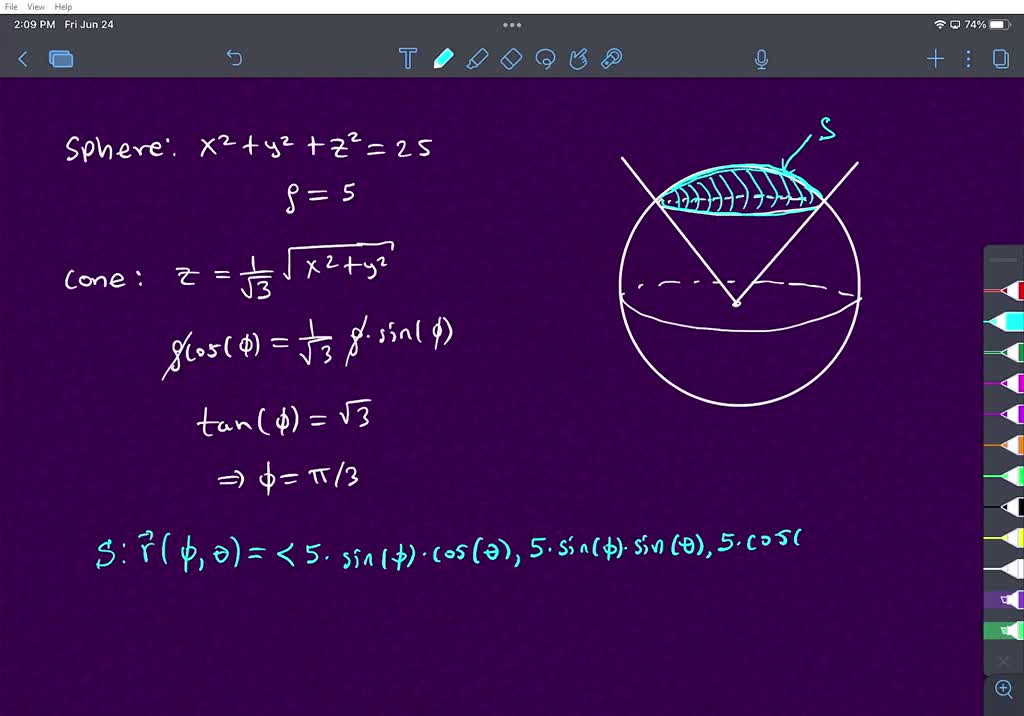 File View Help
2:09 PM Fri Jun 24
74%
T
S
Sphere: x² + y² + z² = 25
ρ = 5
Cone: z = 1/√3 √(x² + y²)
ρcos(ϕ) = 1/√3 ρ·sin(ϕ)
tan(ϕ) = √3
⇒ ϕ = π/3
S: r⃗(ϕ,θ) = <5·sin(ϕ)·cos(θ), 5·sin(ϕ)·sin(θ), 5·cos(